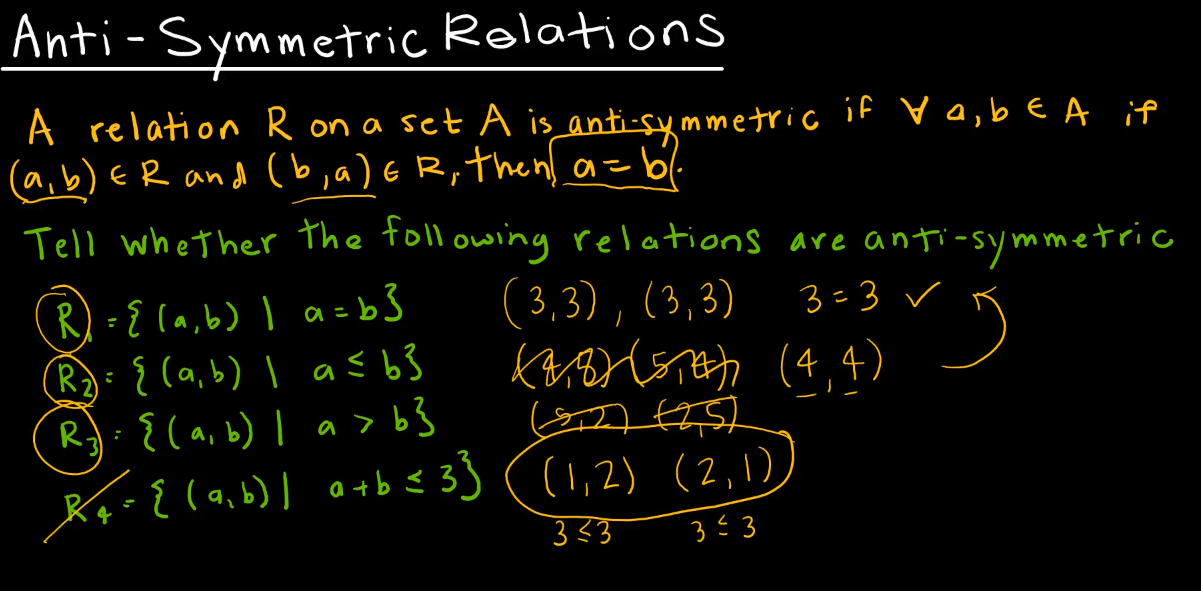 Anti-Symmetric Relations
A relation R on a set A is anti-symmetric if ∀ a,b ∈ A if
(a,b) ∈ R and (b,a) ∈ R, then a = b.
Tell whether the following relations are anti-symmetric
R₁ = { (a,b) | a = b} (3,3), (3,3) 3 = 3 ✓
R₂ = { (a,b) | a ≤ b} (5,4), (4,4)
R₃ = { (a,b) | a > b} (5,2) (2,5)
R₄ = { (a,b) | a+b ≤ 3} (1,2) (2,1)
3 ≤ 3 3 ≤ 3